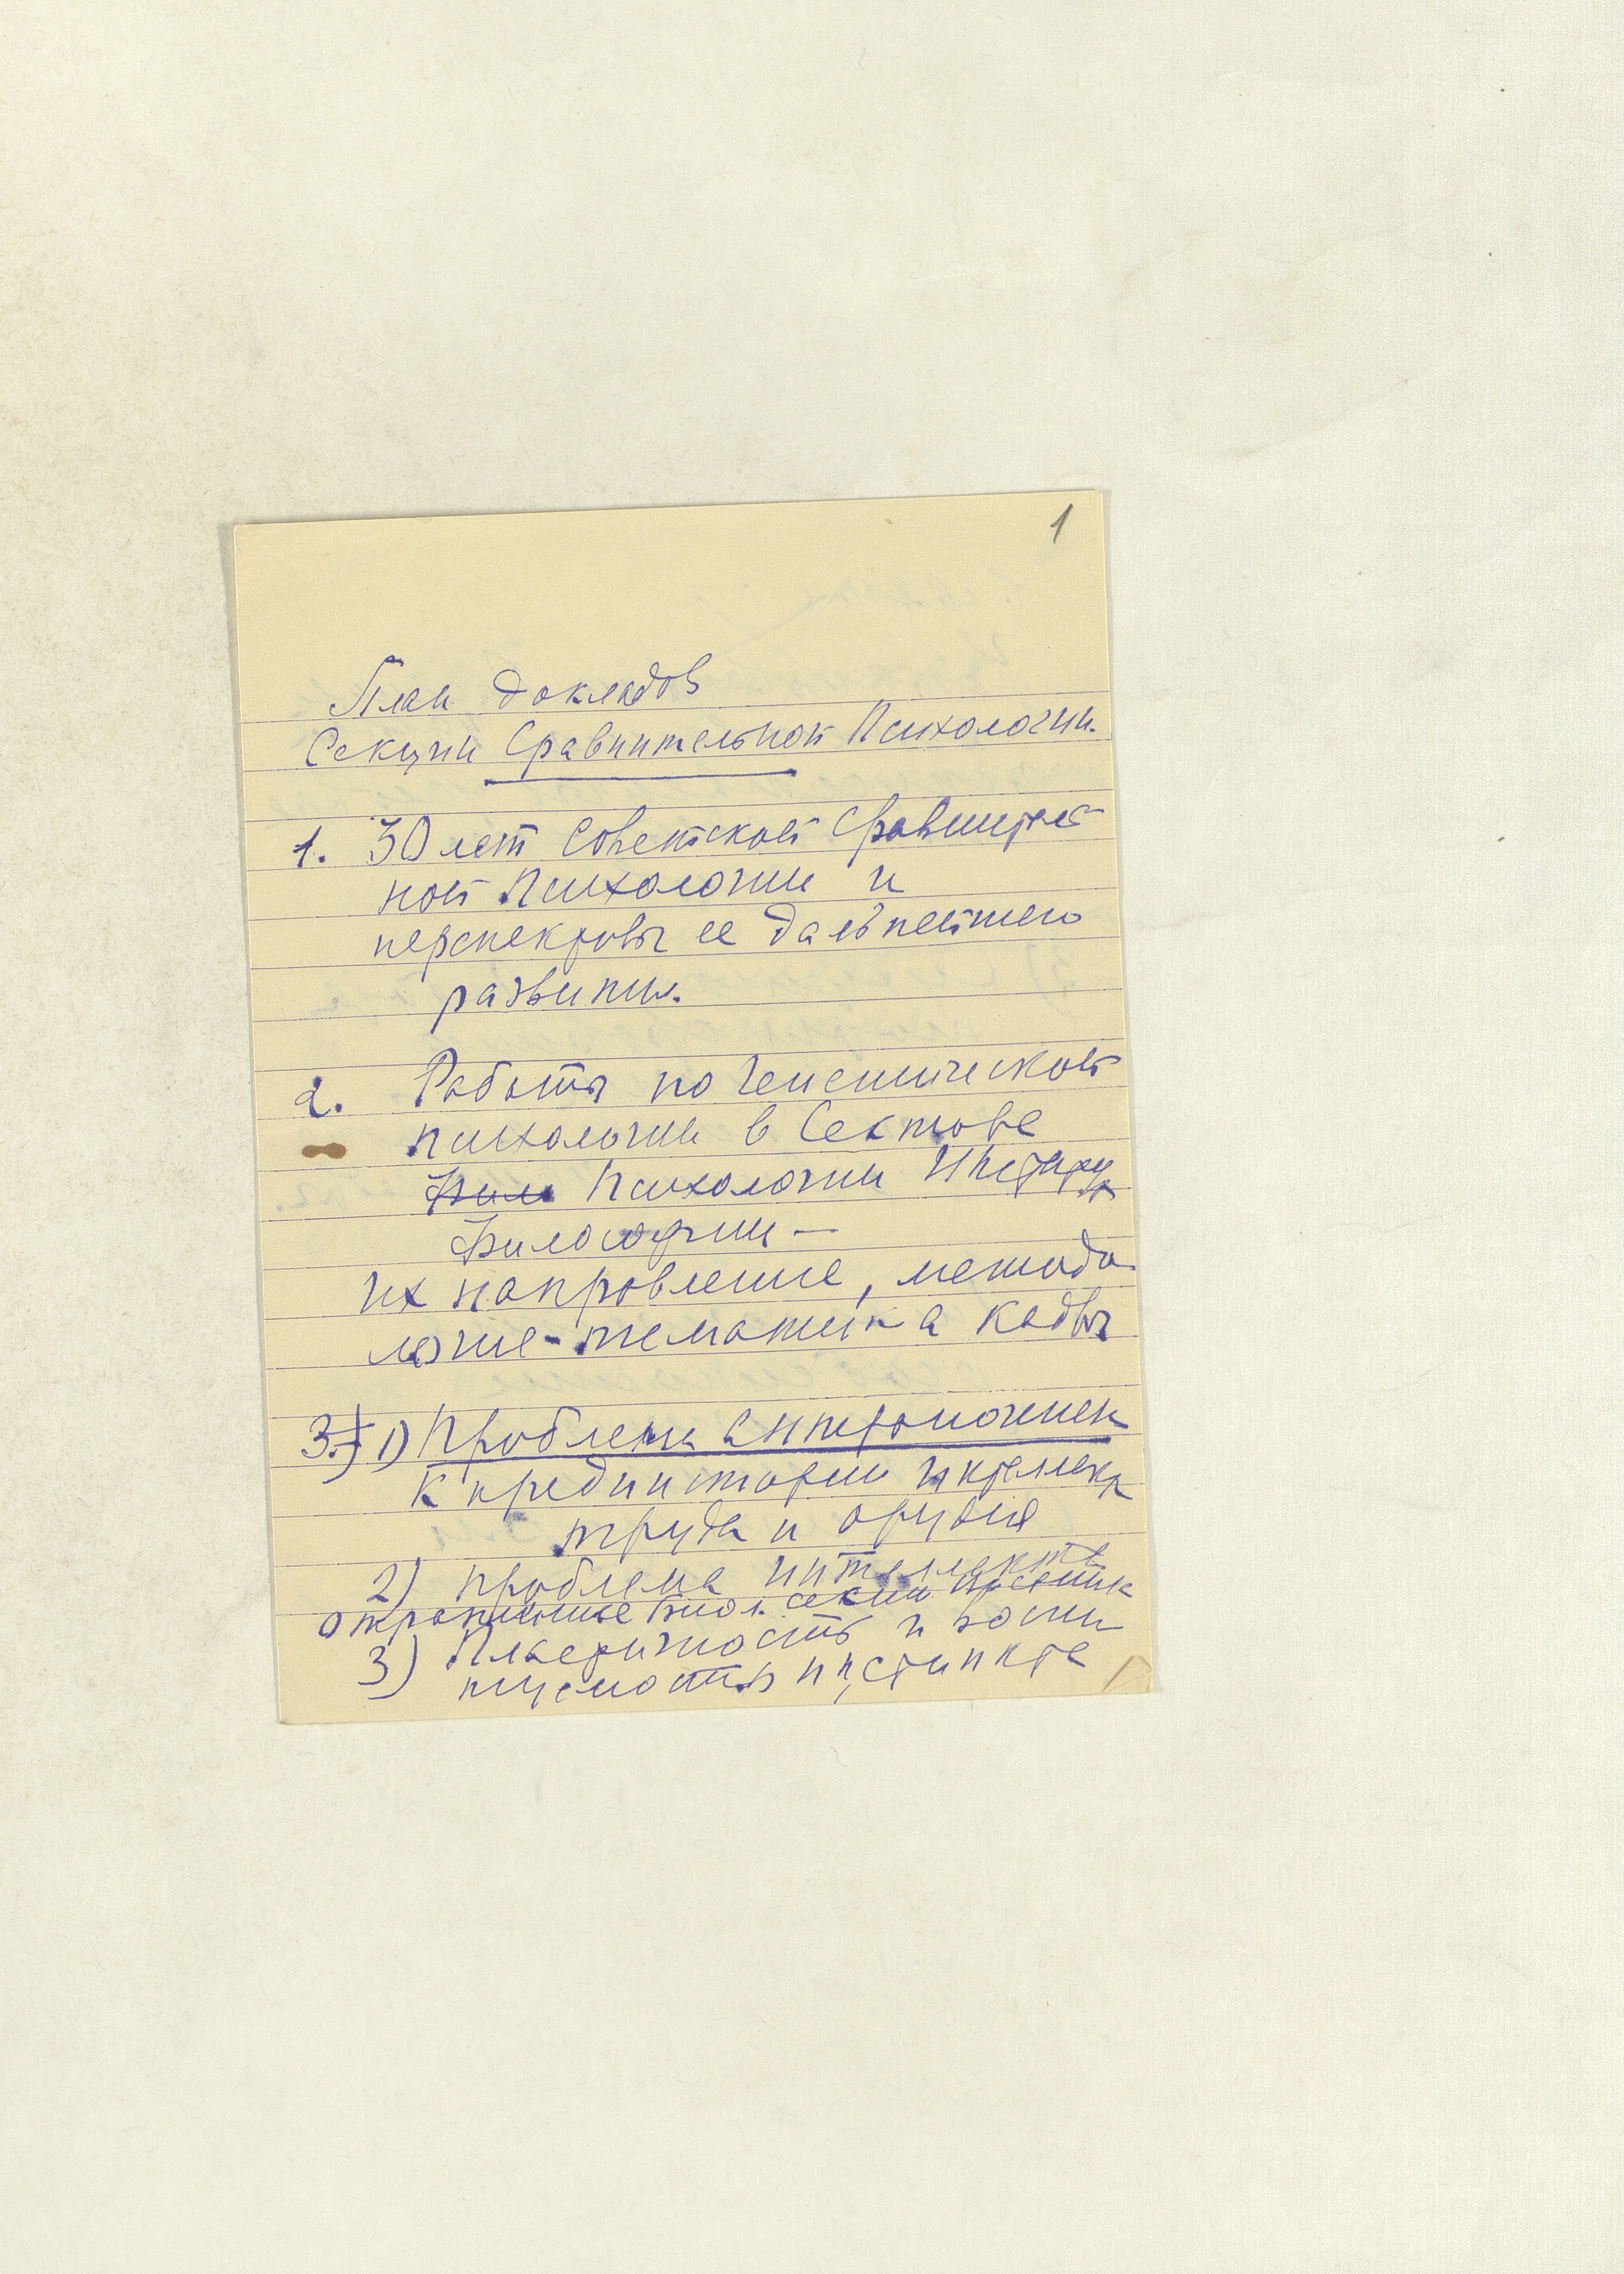 1
План докладов
Секции Сравнительной Психологии.
1. 30 лет Советской Сравнитель
ной Психологии и
перспективы ее дальнейшего
развития.
2. Работы по генетической
психологии в Секторе
Психологии Институт
Философии —
их направление, методо
логия - тематика кадры
3. 1) Проблема антропогенеза
К предистории интеллекта
труда и орудия
2) Проблема интеллекта
3) Пластичность и
инстинкта